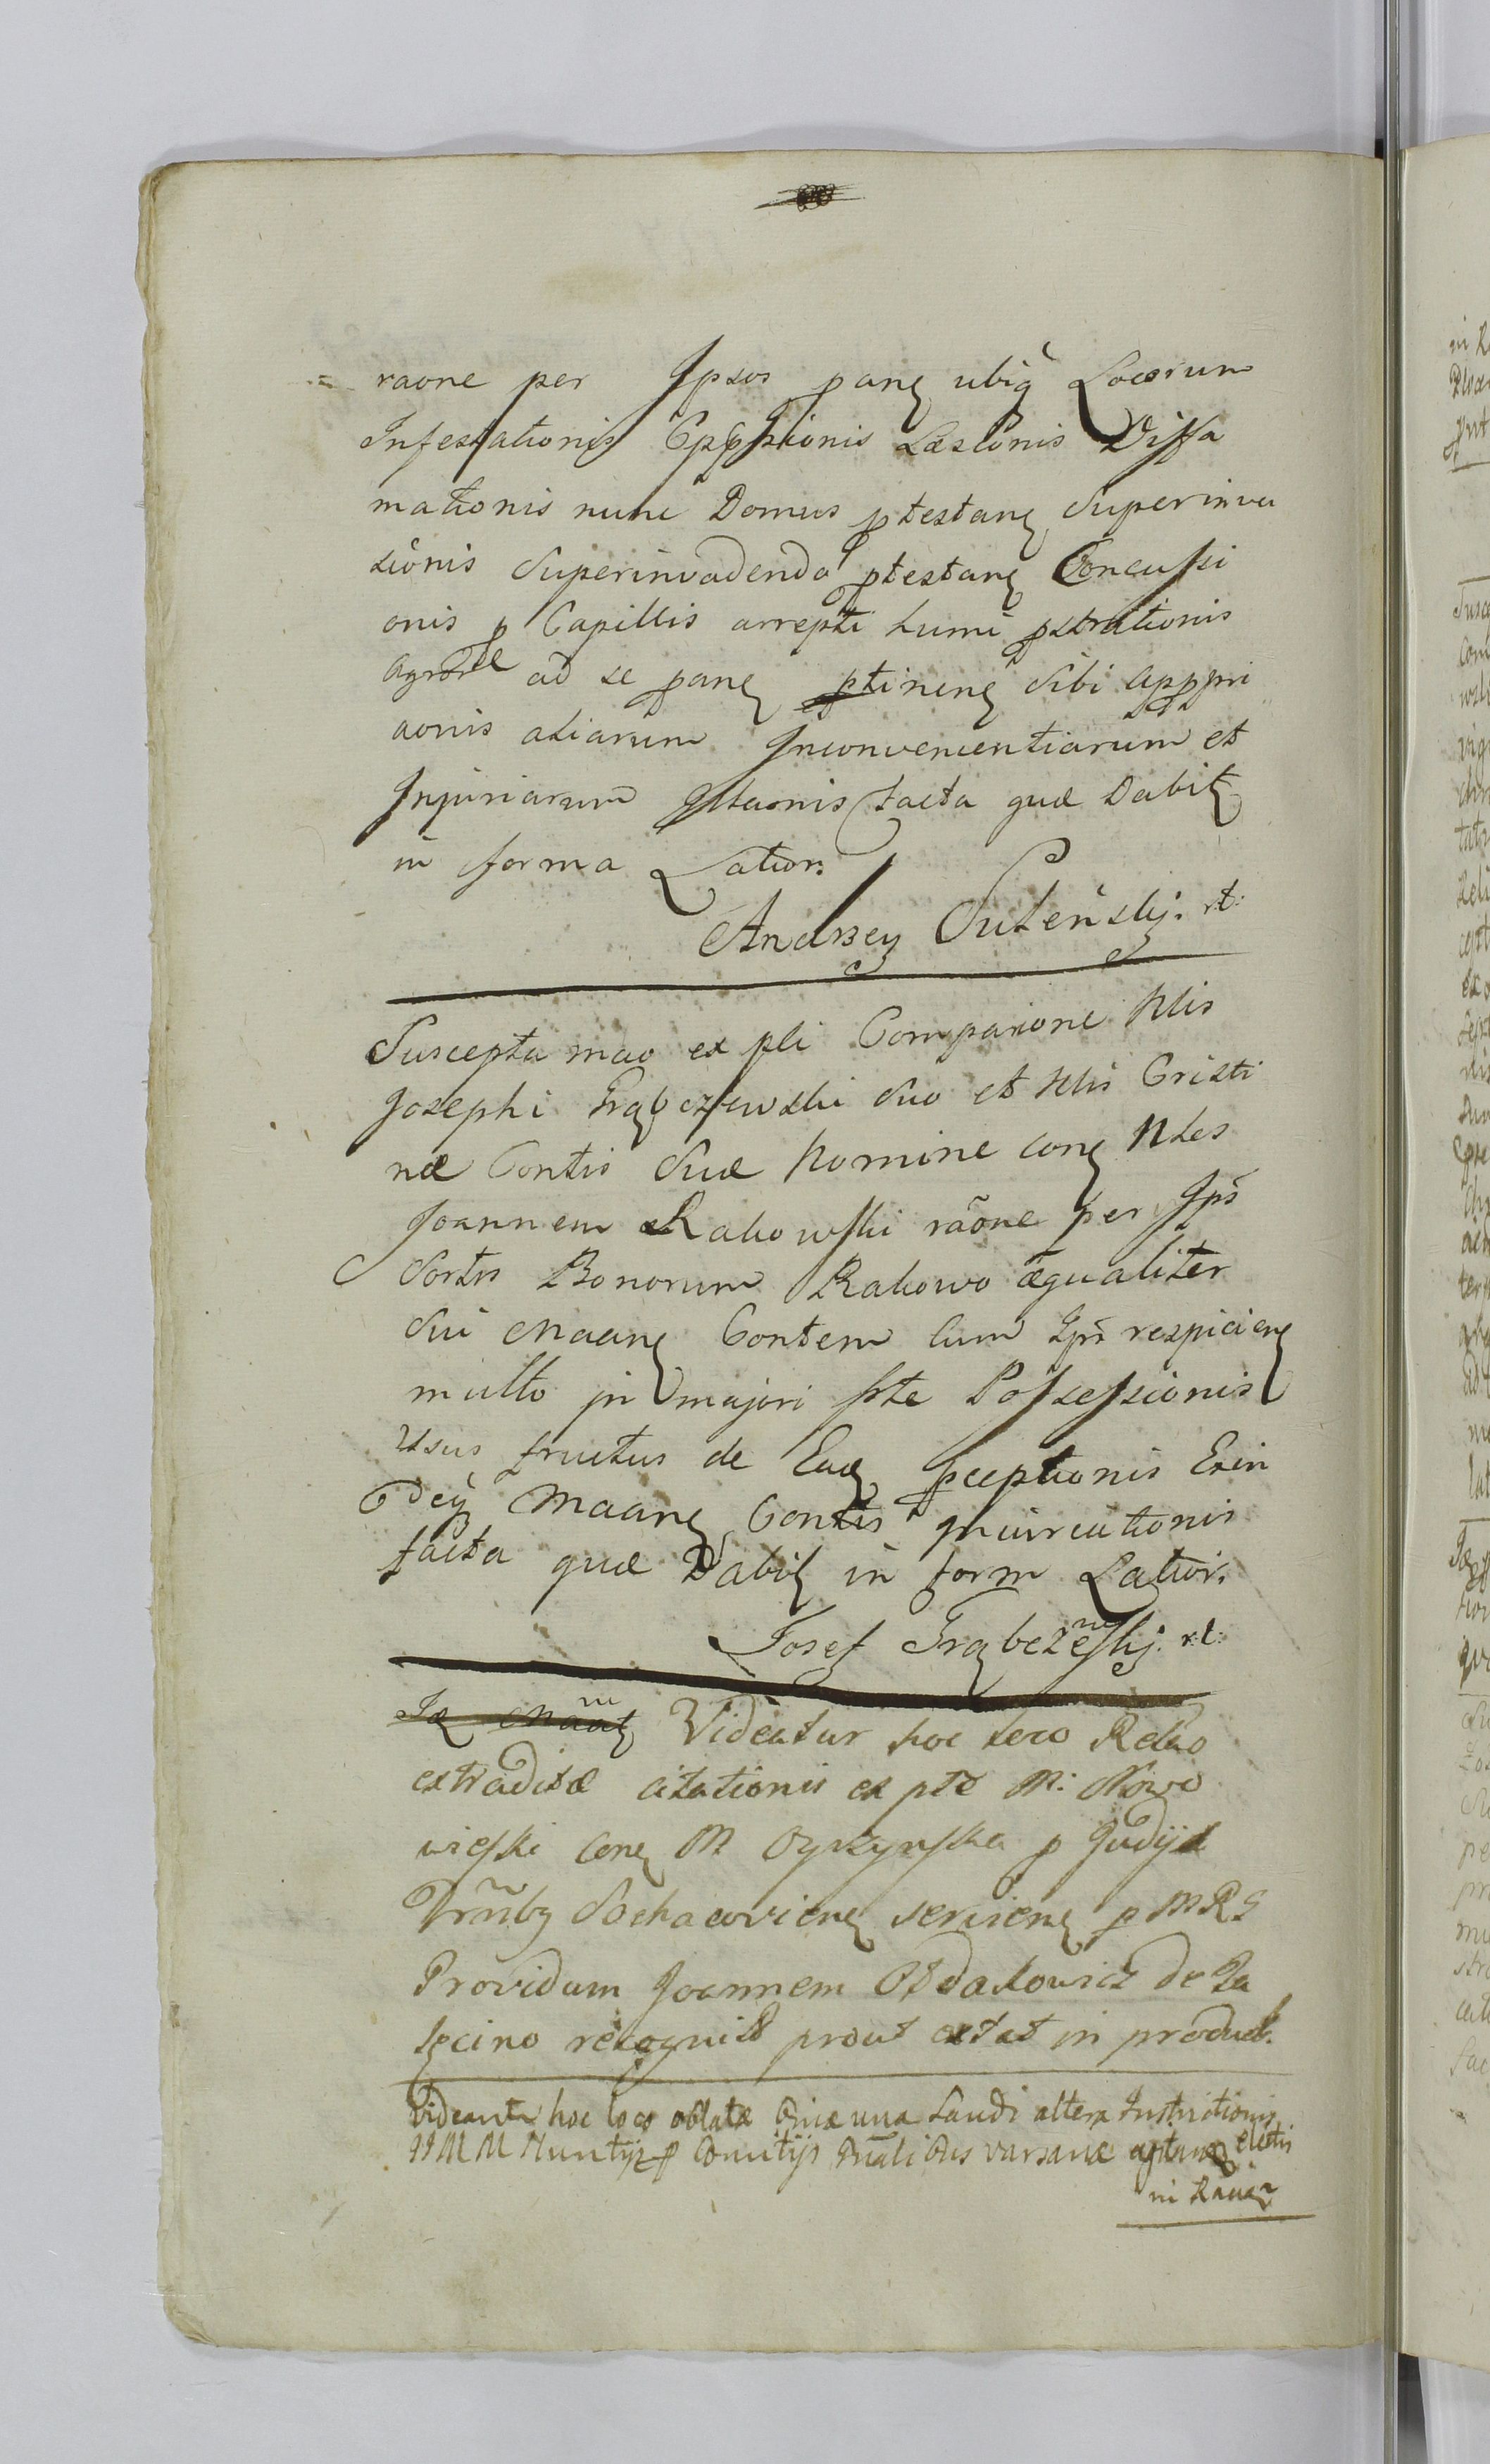 raone per Ipsos pang ubiq Locorum
Infestationis Oppssionis Læsionis Diffa
mationis nunc Domus ptestang Superinva
sionis Superinvadendo ptestang Concussi
onis p Capillis arrepti humi pstrationis
ad se pang ptineng sibi apppri
aonis aliarum Inconvenientiarum et
Injuriarum Illaonis facta quæ Dabit
in forma Latior:
Andrzey Suleński. rt:
Suscepta mao ex pli Comparione Nlis
Josephi Grąbczewski suo et Nlis Cristi
næ Contis suæ Nomine cong Nles
Joannem Rakowski raõne per Ips
Sortis Bonorum Rakowo æqualiter
sui Maang Contem cum Ips respicieng
multo in majori pte Possessionis
Usus fructus de Eadg pceptionis Exin
Maang Contis
facta quæ Dabit in form Latior.
Josef Grąbczewski. rt:
Videatur hoc loco Relao
extraditæ citationis ex pte M: Nowo
wieski cong M Oyrzyńska p Judijs
Trñlby Sochacovieng servieng p MRG
Providum Joannem de Za
łęcino recognit prout extat in product.
Videantr hoc loco oblatæ binæ una Laudi altera Instructionis
IIMM Nuntijs p Comitijs Gnalibus Varsaviæ electis
in Raveñ